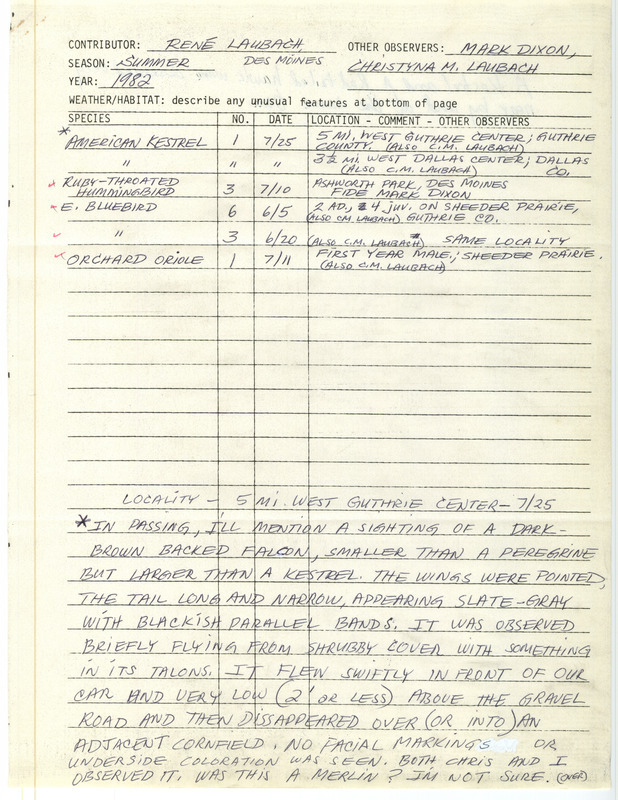 CONTRIBUTOR: RENÉ LAUBACH OTHER OBSERVERS: MARK DIXON,
SEASON: SUMMER DES MOINES CHRISTYNA M. LAUBACH
YEAR: 1982
WEATHER/HABITAT: describe any unusual features at bottom of page
SPECIES NO. DATE LOCATION - COMMENT - OTHER OBSERVERS
* AMERICAN KESTREL 1 7/25 5 MI. WEST GUTHRIE CENTER; GUTHRIE
COUNTY. (ALSO C.M. LAUBACH)
" " " 3½ MI. WEST DALLAS CENTER; DALLAS
(ALSO C.M. LAUBACH) CO.
RUBY-THROATED ASHWORTH PARK, DES MOINES
HUMMINGBIRD 3 7/10 FIDE MARK DIXON
E. BLUEBIRD 6 6/5 2 AD., 4 JUV. ON SHEEDER PRAIRIE,
(ALSO C.M. LAUBACH) GUTHRIE CO.
" 3 6/20 (ALSO C.M. LAUBACH) SAME LOCALITY
ORCHARD ORIOLE 1 7/11 FIRST YEAR MALE; SHEEDER PRAIRIE.
(ALSO C.M. LAUBACH)
LOCALITY - 5 MI. WEST GUTHRIE CENTER - 7/25
* IN PASSING, I'LL MENTION A SIGHTING OF A DARK-
BROWN BACKED FALCON, SMALLER THAN A PEREGRINE
BUT LARGER THAN A KESTREL. THE WINGS WERE POINTED,
THE TAIL LONG AND NARROW, APPEARING SLATE-GRAY
WITH BLACKISH PARALLEL BANDS. IT WAS OBSERVED
BRIEFLY FLYING FROM SHRUBBY COVER WITH SOMETHING
IN ITS TALONS. IT FLEW SWIFTLY IN FRONT OF OUR
CAR AND VERY LOW (2' OR LESS) ABOVE THE GRAVEL
ROAD AND THEN DISSAPPEARED OVER (OR INTO) AN
ADJACENT CORNFIELD. NO FACIAL MARKINGS OR
UNDERSIDE COLORATION WAS SEEN. BOTH CHRIS AND I
OBSERVED IT. WAS THIS A MERLIN? IM NOT SURE. (OVER)